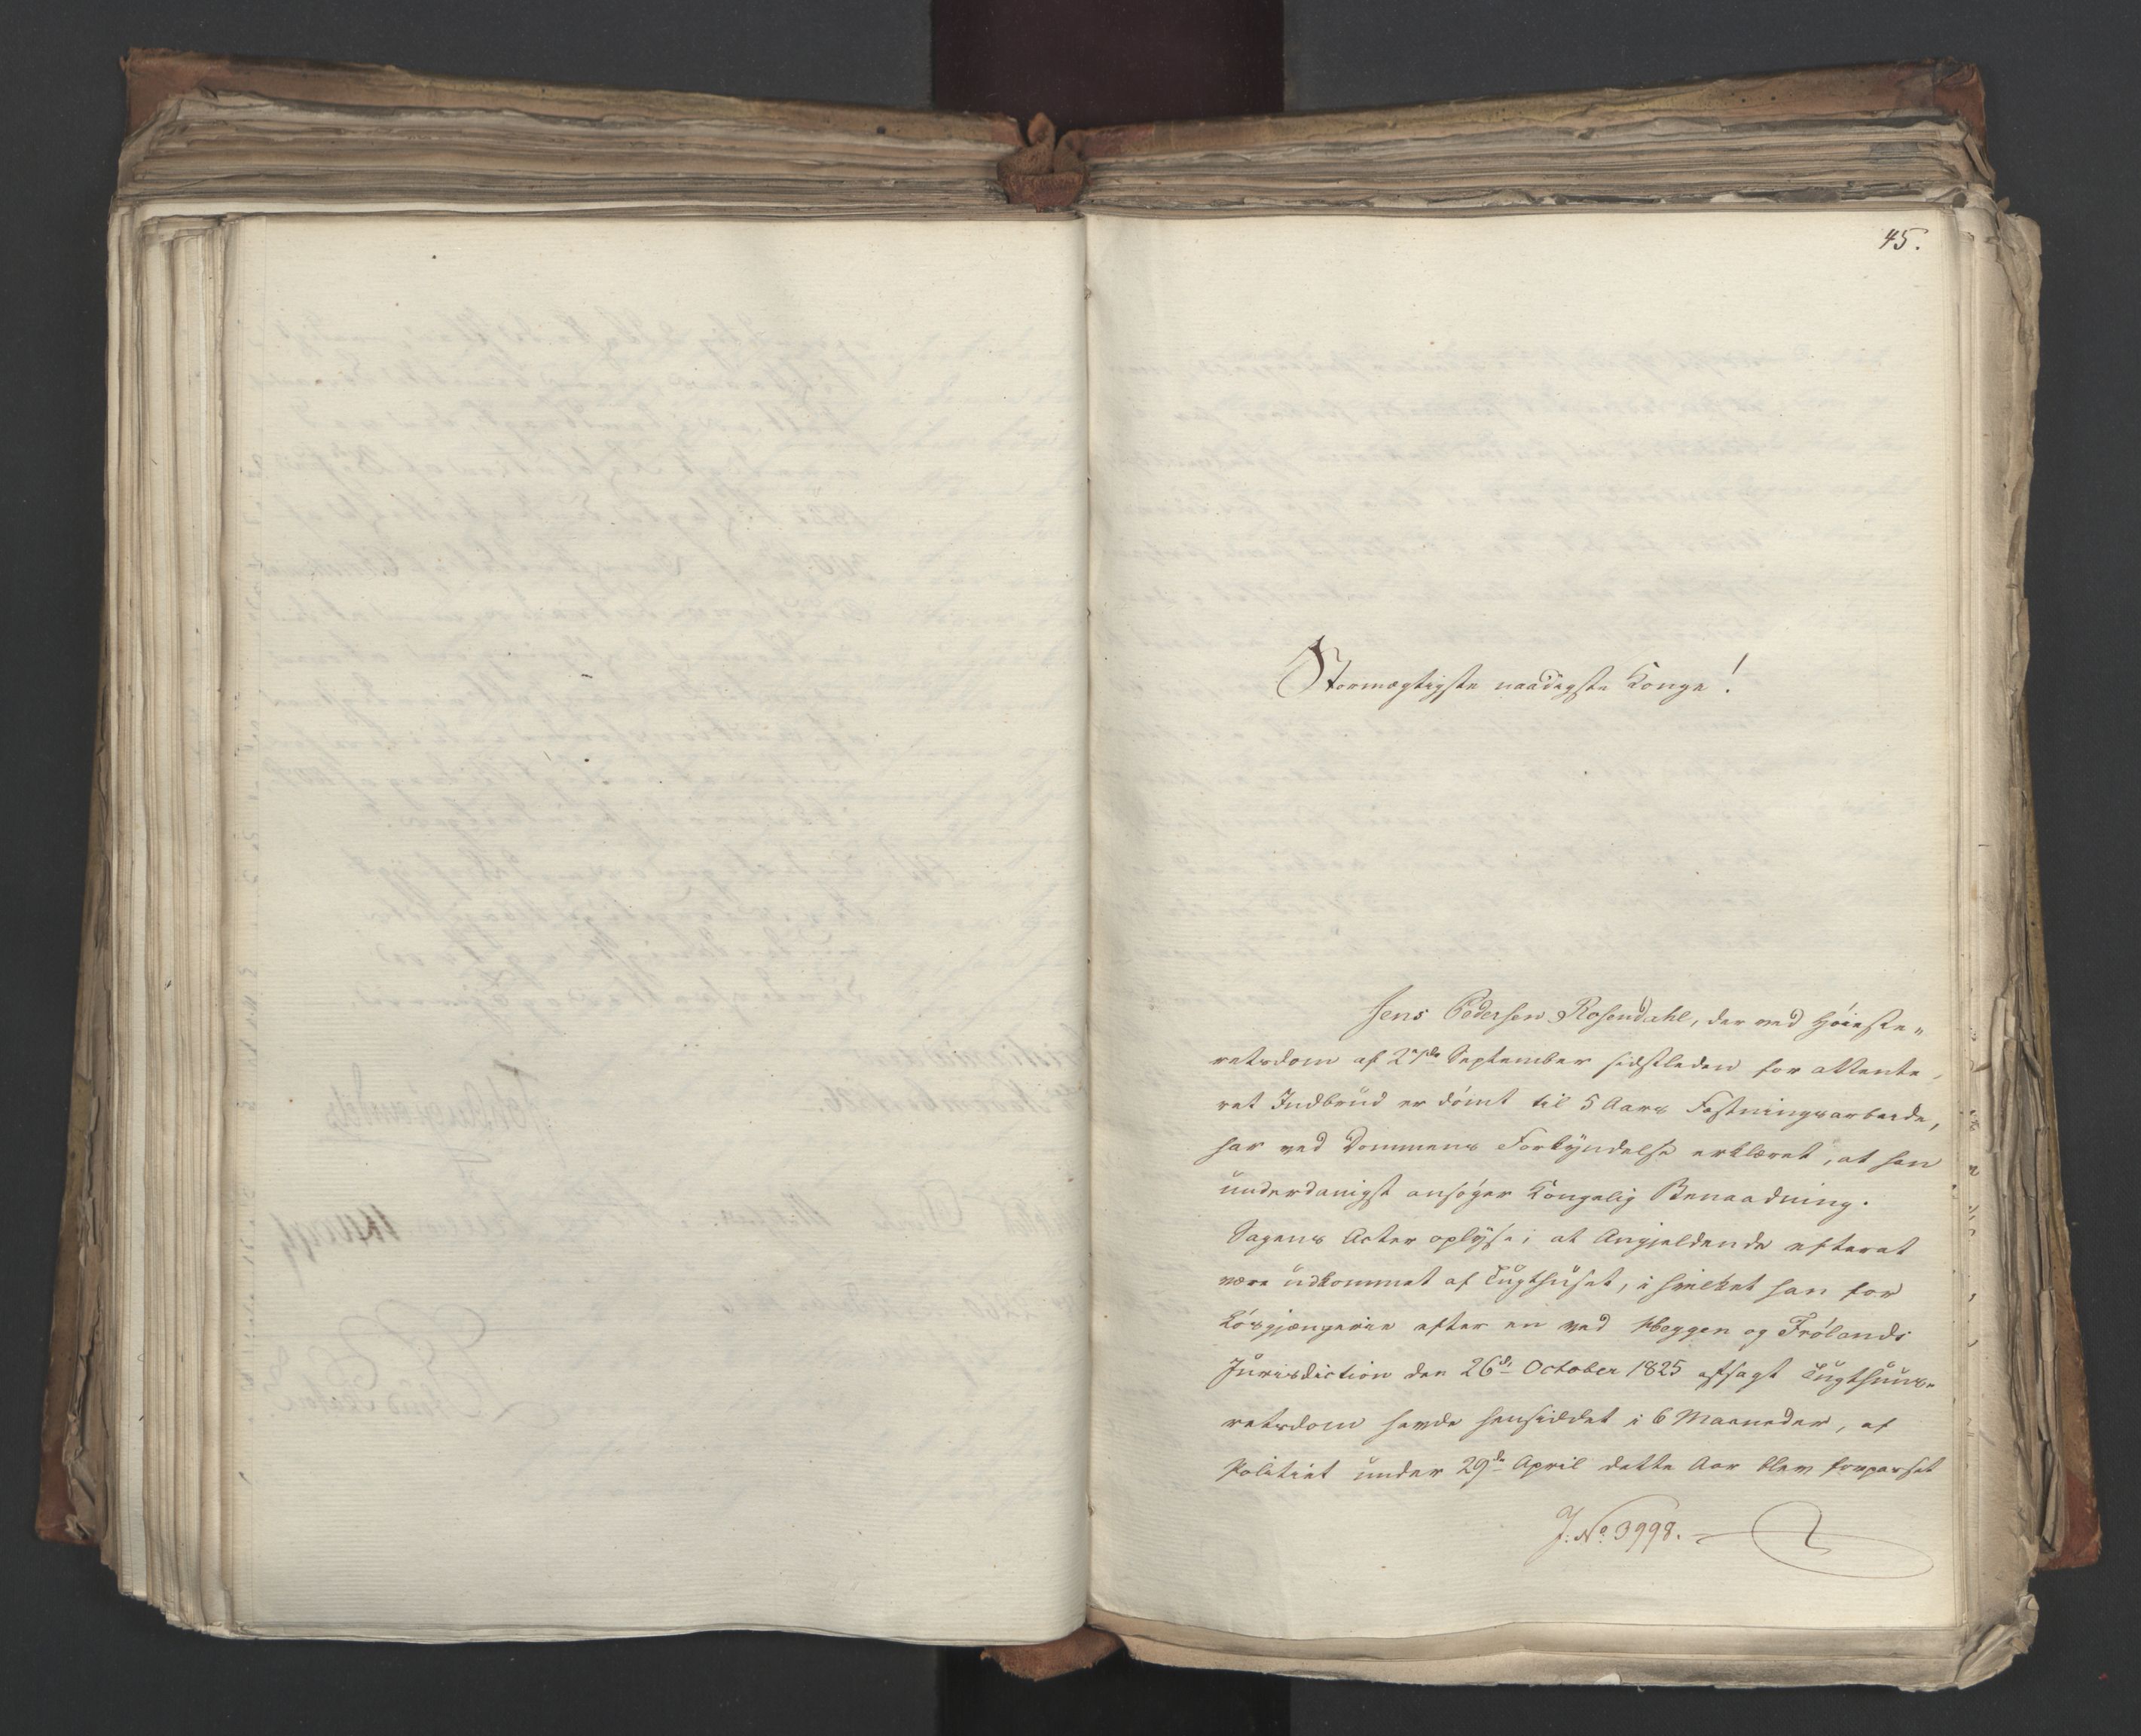 45.
Stormægtigste naadigste Konge!
Jens Pedersen Rosendahl, der ved Høieste„
retsdom af 27de September sidstleden for attente„
ret Indbrud er dømt til 5 Aars Fæstningsarbeide,
har ved Dommens Forkyndelse erklæret, at han
underdanigst ansøger Kongelig Benaadning.
Sagens Acter oplyse, at Angjældende efterat
være udkommet af Tugthuset, i hvilket han for
Løsgjængerie efter en ved Heggen og Frølands
Jurisdiction den 26de October 1825 afsagt Tugthuus„
retsdom havde hensiddet i 6 Maaneder, af
Politiet under 29de April dette Aar blev forpasset
J. No 3998.